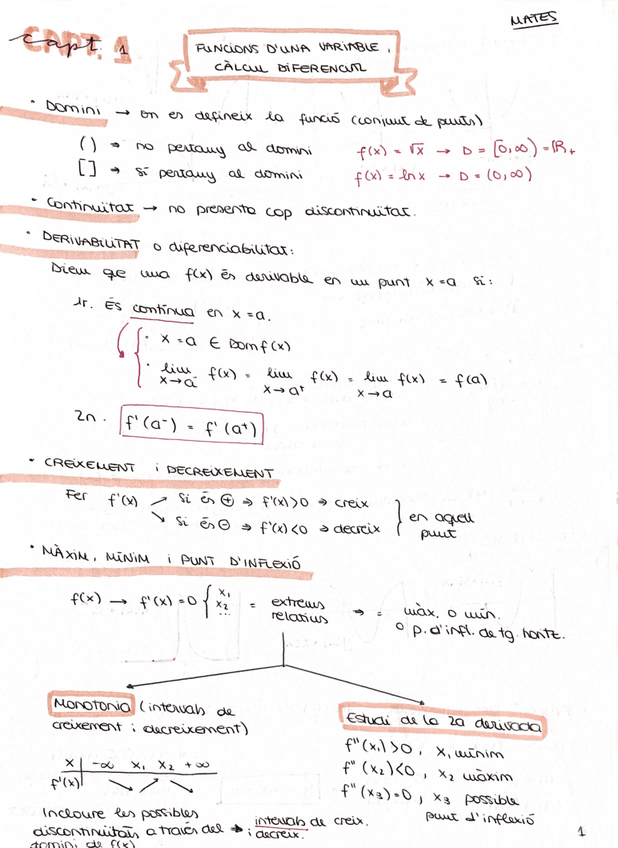 MATES
CAPT. 1
capt. 1
FUNCIONS D'UNA VARIABLE.
CÀLCUL DIFERENCIAL
· DOMINI → on es defineix la funció (conjunt de punts)
( ) → no pertany al domini f(x) = √x → D = [0,∞) = ℝ+
[ ] → sí pertany al domini f(x) = ln x → D = (0,∞)
· CONTINUITAT → no presenta cap discontinuïtat.
· DERIVABILITAT o diferenciabilitat:
Diem que una f(x) és derivable en un punt x=a si:
1r. És contínua en x=a.
· x=a ∈ Dom f(x)
· lim x→a⁻ f(x) = lim x→a⁺ f(x) = lim x→a f(x) = f(a)
2n. f'(a⁻) = f'(a⁺)
· CREIXEMENT i DECREIXEMENT
Fer f'(x) ↗ Si és ⊕ → f'(x)>0 → creix
↘ Si és ⊖ → f'(x)<0 → decreix } en aquell punt
· MÀXIM, MÍNIM i PUNT D'INFLEXIÓ
f(x) → f'(x)=0 { x₁ x₂ ... = extrems relatius → = màx. o mín.
o p. d'infl. de tg. horitz.
Monotonia (intervals de
creixement i decreixement)
x | -∞ x₁ x₂ +∞
f'(x) | ↘ ↗ ↘
Incloure les possibles
discontinuïtats a través del → intervals de creix.
domini de f(x) i decreix.
Estudi de la 2a derivada
f''(x₁)>0, x₁ mínim
f''(x₂)<0, x₂ màxim
f''(x₃)=0, x₃ possible
punt d'inflexió
1